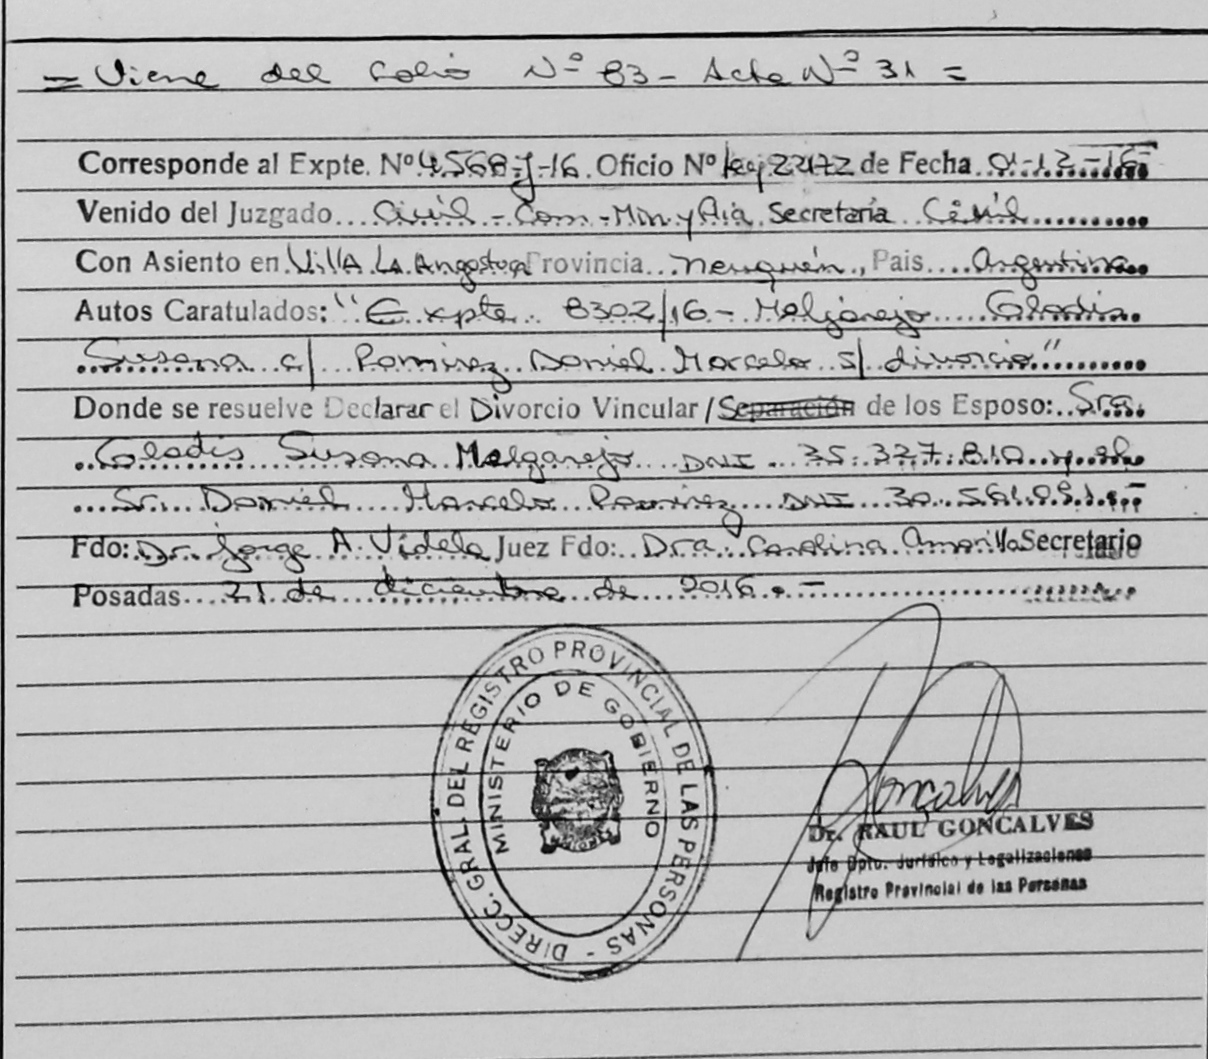 = Viene del Folio Nº 83 - Acta Nº 31 =
Corresponde al Expte. Nº 4568-J-16. Oficio Nº Ley 22172 de Fecha 01-12-16-
Venido del Juzgado Civil - Com - Min y Secretaría Civil
Con Asiento en Villa La Angostura Provincia Neuquén, Pais Argentina
Autos Caratulados: "Expte. 8302/16 - Meljarejo Gladis
Susana c/ Ramirez Daniel Marcelo s/ divorcio"
Donde se resuelve Declarar el Divorcio Vincular / Separación de los Esposo: Sra.
Gladis Susana Melgarejo DNI 35.327.810 y el
Sr. Daniel Marcelo Ramirez DNI 30.561.051.-
Fdo: Dr. Jorge A. Videla Juez Fdo: Dra. Carolina Amarilla Secretario
Posadas 21 de diciembre de 2016.-
DIRECC. GRAL. DEL REGISTRO PROVINCIAL DE LAS PERSONAS -
MINISTERIO DE GOBIERNO
Dr. RAUL GONCALVES
Jefe Dpto. Jurídico y Legalizaciones
Registro Provincial de las Personas